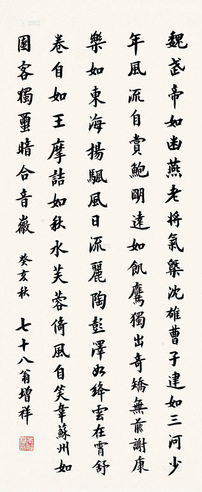 魏武帝如幽燕老將氣槩沈雄曹子建如三河少
年風流自賞鮑明達如飢鷹獨出奇矯無前謝康
樂如東海揚颿風日流麗陶彭澤如絳雲在霄舒
卷自如王摩詰如秋水芙蓉倚風自笑韋蘇州如
園客獨璽暗合音徽
癸亥秋 七十八翁增祥